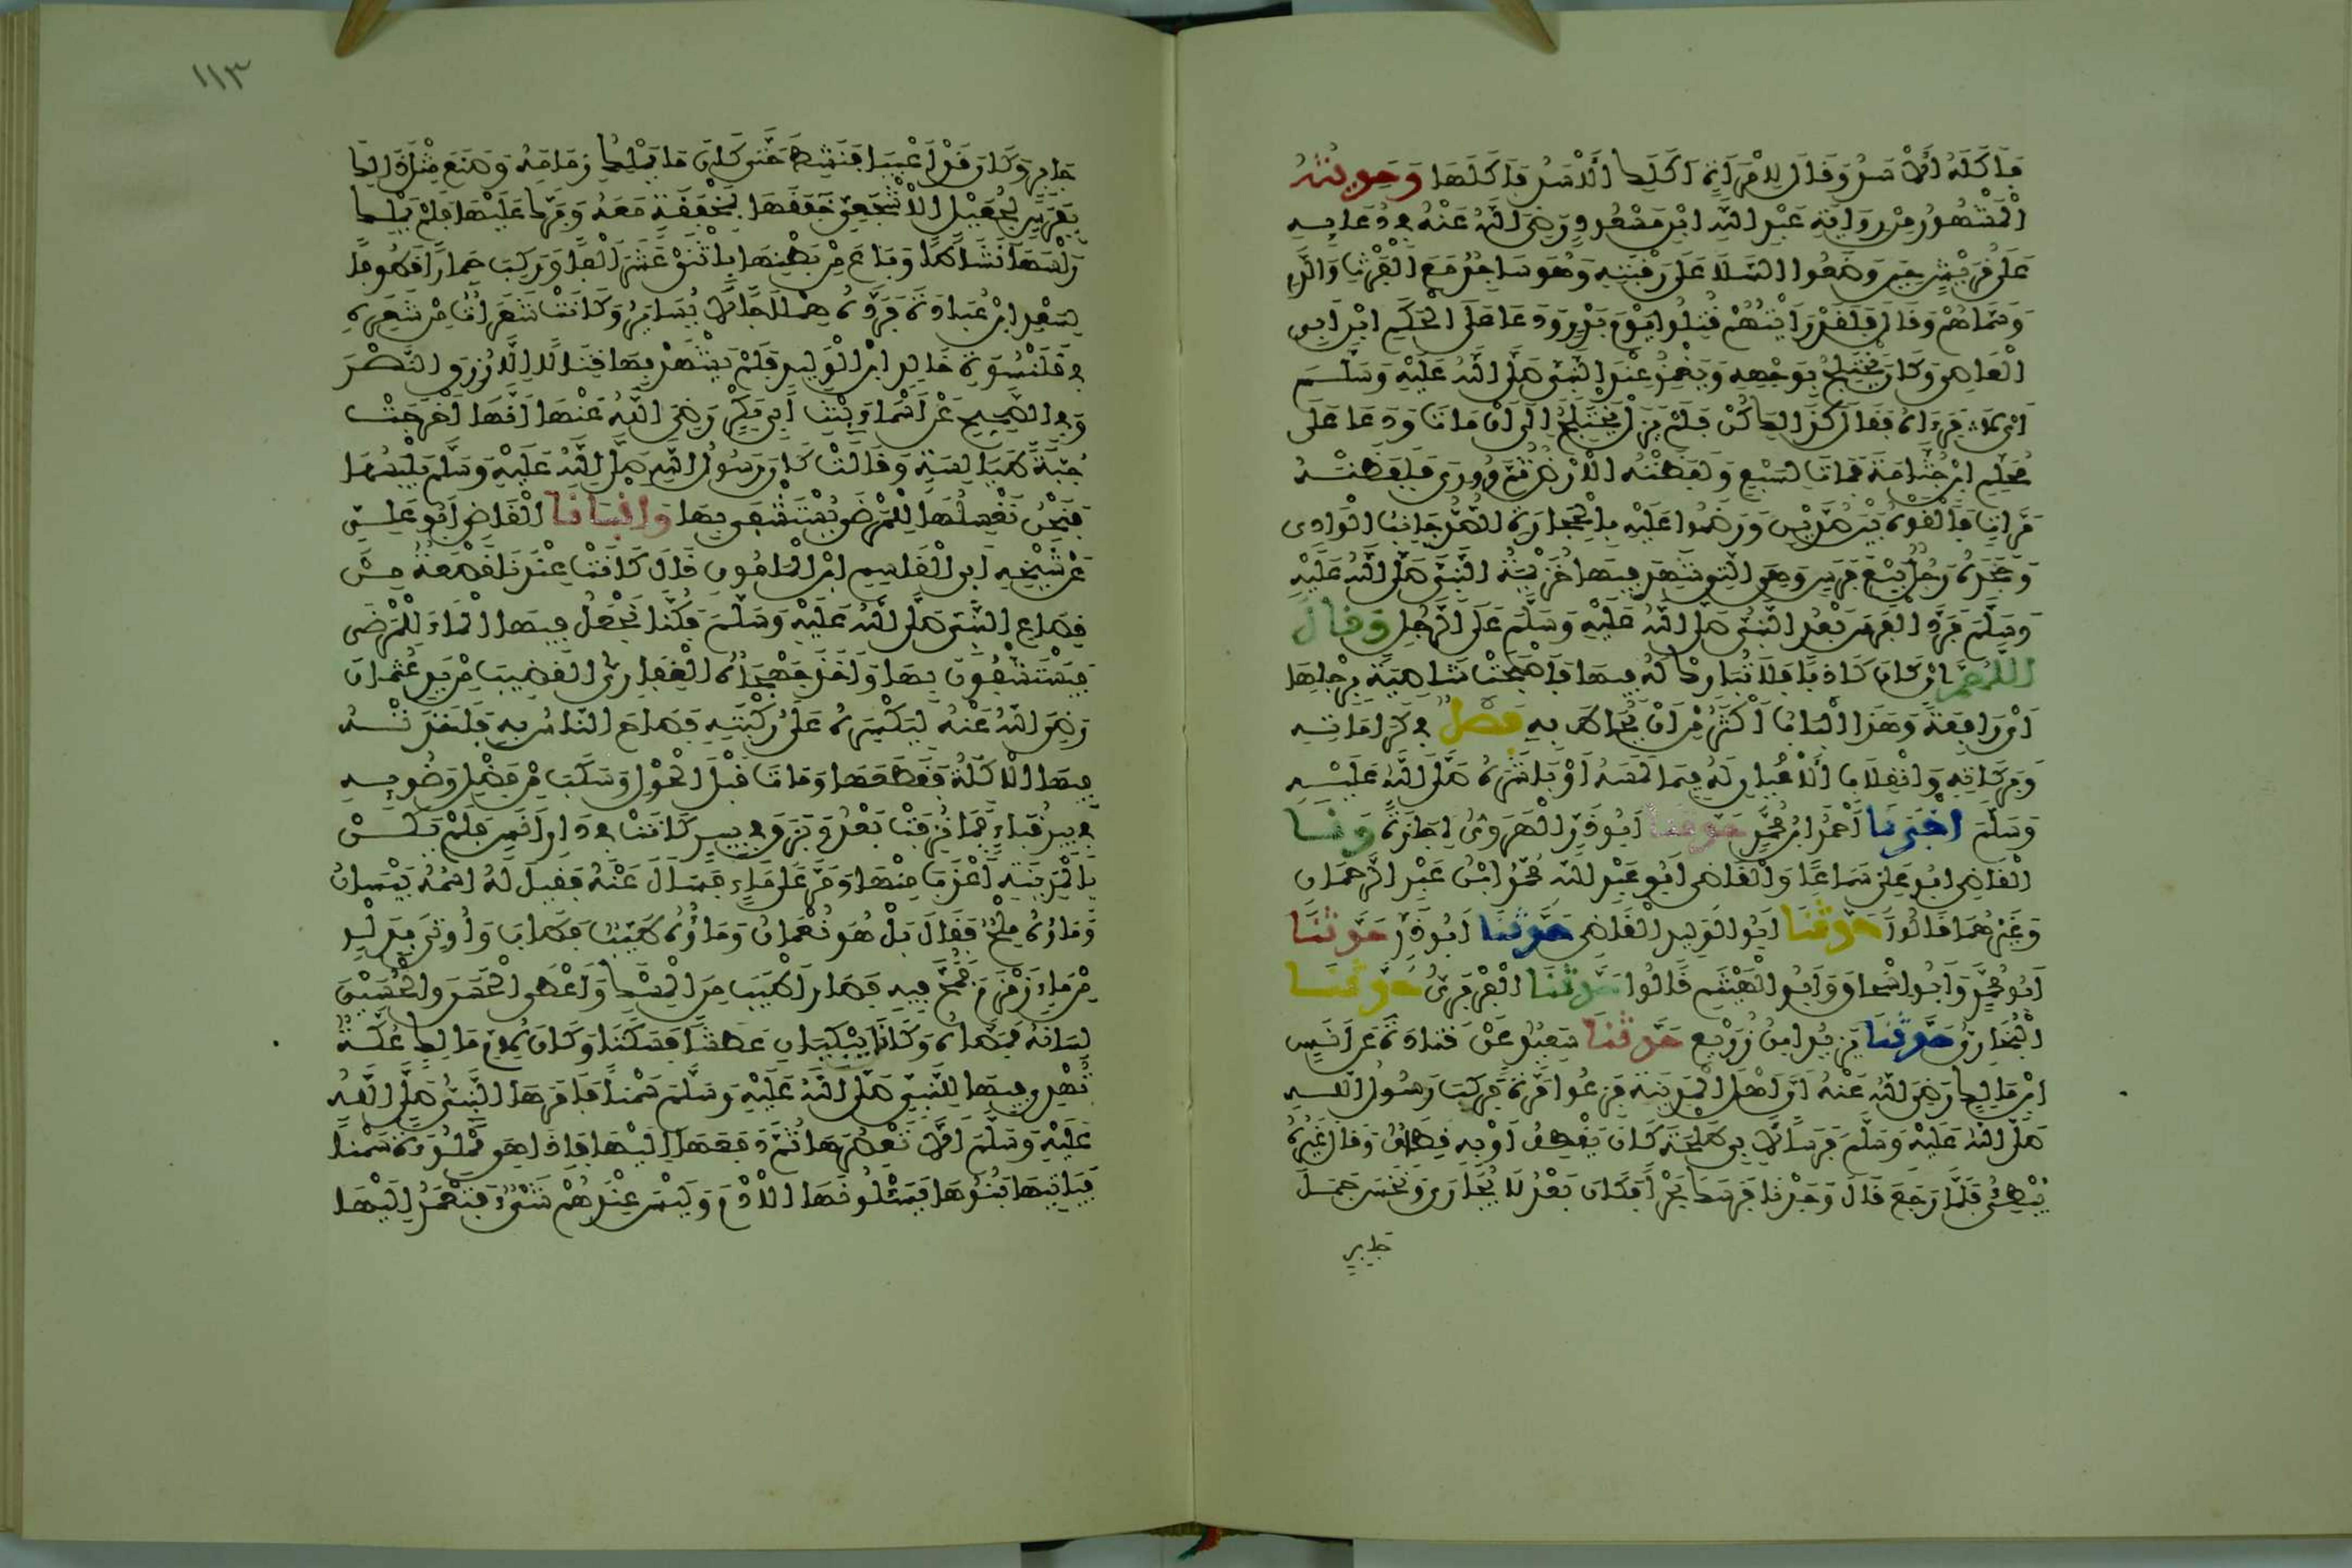 فَأَكَلَهُ الْأَسَدُ وَقَالَ لِامْرَأَةٍ أَكَلَكِ الْأَسَدُ فَأَكَلَهَا وَحَدِيثُهُ
الْمَشْهُورُ مِنْ رِوَايَةِ عَبْدِ اللَّهِ ابْنِ مَسْعُودٍ رَضِيَ اللَّهُ عَنْهُ فِي دُعَائِهِ
عَلَى قُرَيْشٍ حِينَ وَضَعُوا السَّلَا عَلَى رَقَبَتِهِ وَهُوَ سَاجِدٌ مَعَ الْفَرْثِ وَالدَّمِ
وَسَمَّاهُمْ وَقَالَ فَلَقَدْ رَأَيْتُهُمْ قُتِلُوا يَوْمَ بَدْرٍ وَدَعَا عَلَى الْحَكَمِ ابْنِ أَبِي
الْعَاصِي وَكَانَ يَخْتَلِجُ بِوَجْهِهِ وَيَغْمِزُ عِنْدَ النَّبِيِّ صَلَّى اللَّهُ عَلَيْهِ وَسَلَّمَ
أَيْ لَا فَرَآهُ فَقَالَ كَذَلِكَ كُنْ فَلَمْ يَزَلْ يَخْتَلِجُ إِلَى أَنْ مَاتَ وَدَعَا عَلَى
مُحَلِّمِ ابْنِ جُثَامَةَ فَمَاتَ لِسَبْعٍ وَلَفَظَتْهُ الْأَرْضُ ثُمَّ وُورِيَ فَلَفَظَتْهُ
مَرَّاتٍ فَأَلْقَوْهُ بَيْنَ صُدَّيْنِ وَرَضَمُوا عَلَيْهِ بِالْحِجَارَةِ الصُّدُّ جَانِبُ الْوَادِي
وَجَحَدَهُ رَجُلٌ بَيْعَ فَرَسٍ وَهِيَ الَّتِي شَهِدَ فِيهَا خُزَيْمَةُ النَّبِيَّ صَلَّى اللَّهُ عَلَيْهِ
وَسَلَّمَ فَرَدَّ الْفَرَسَ بَعْدُ النَّبِيُّ صَلَّى اللَّهُ عَلَيْهِ وَسَلَّمَ عَلَى الرَّجُلِ وَقَالَ
اللَّهُمَّ إِنْ كَانَ كَاذِبًا فَلَا تُبَارِكْ لَهُ فِيهَا فَأَصْبَحَتْ شَاصِيَةً بِرِجْلِهَا
أَيْ رَافِعَةً وَهَذَا الْبَابُ أَكْثَرُ مِنْ أَنْ يُحَاطَ بِهِ فَصْلٌ فِي كَرَامَاتِهِ
وَبَرَكَاتِهِ وَانْقِلَابِ الْأَعْيَانِ لَهُ فِيمَا لَمَسَهُ أَوْ بَاشَرَهُ صَلَّى اللَّهُ عَلَيْهِ
وَسَلَّمَ أَخْبَرَنَا أَحْمَدُ ابْنُ مُحَمَّدٍ حَدَّثَنَا أَبُو ذَرٍّ الْهَرَوِيُّ إِجَازَةً وَنَا
الْقَاضِي أَبُو عَلِيٍّ سَمَاعًا وَالْقَاضِي أَبُو عَبْدِ اللَّهِ مُحَمَّدُ ابْنُ عَبْدِ الرَّحْمَانِ
وَغَيْرُهُمَا قَالُوا حَدَّثَنَا أَبُو الْوَلِيدِ الْقَاضِي حَدَّثَنَا أَبُو ذَرٍّ حَدَّثَنَا
أَبُو مُحَمَّدٍ وَأَبُو إِسْحَاقَ وَأَبُو الْهَيْثَمِ قَالُوا حَدَّثَنَا الْفَرَبْرِيُّ حَدَّثَنَا
الْبُخَارِيُّ حَدَّثَنَا يَزِيدُ ابْنُ زُرَيْعٍ حَدَّثَنَا سَعِيدٌ عَنْ قَتَادَةَ عَنْ أَنَسِ
ابْنِ مَالِكٍ رَضِيَ اللَّهُ عَنْهُ أَنَّ أَهْلَ الْمَدِينَةِ فَزِعُوا مَرَّةً فَرَكِبَ رَسُولُ اللَّهِ
صَلَّى اللَّهُ عَلَيْهِ وَسَلَّمَ فَرَسًا لِأَبِي طَلْحَةَ كَانَ يَقْطِفُ أَوْ بِهِ قِطَافٌ وَقَالَ غَيْرُهُ
يُبْطِئُ فَلَمَّا رَجَعَ قَالَ وَجَدْنَا فَرَسَكَ بَحْرًا فَكَانَ بَعْدُ لَا يُجَارَى وَنَخَسَ جَمَلَ
جَابِرٍ
١١٣
جَابِرٍ وَكَانَ قَدْ أَعْيَا فَنَشِطَ حَتَّى كَانَ مَا يَمْلِكُ زِمَامَهُ وَصَنَعَ مِثْلَ ذَلِكَ
بِفَرَسٍ لِجُعَيْلٍ الْأَشْجَعِيِّ خَفَقَهَا بِمِخْفَقَةٍ مَعَهُ وَبَرَّكَ عَلَيْهَا فَلَمْ يَمْلِكْ
رَأْسَهَا نَشَاطًا وَبَاعَ مِنْ بَطْنِهَا بِاثْنَيْ عَشَرَ أَلْفًا وَرَكِبَ حِمَارًا قَطُوفًا
لِسَعْدِ ابْنِ عُبَادَةَ فَرَدَّهُ هِمْلَاجًا لَا يُسَايَرُ وَكَانَتْ شَعَرَاتٌ مِنْ شَعَرِهِ
فِي قَلَنْسُوَةِ خَالِدِ ابْنِ الْوَلِيدِ فَلَمْ يَشْهَدْ بِهَا قِتَالًا إِلَّا رُزِقَ النَّصْرَ
وَفِي الصَّحِيحِ عَنْ أَسْمَاءَ بِنْتِ أَبِي بَكْرٍ رَضِيَ اللَّهُ عَنْهَا أَنَّهَا أَخْرَجَتْ
جُبَّةً طَيَالِسِيَّةً وَقَالَتْ كَانَ رَسُولُ اللَّهِ صَلَّى اللَّهُ عَلَيْهِ وَسَلَّمَ يَلْبَسُهَا
فَنَحْنُ نَغْسِلُهَا لِلْمَرْضَى يُسْتَشْفَى بِهَا وَأَنْبَأَنَا الْقَاضِي أَبُو عَلِيٍّ
عَنْ شَيْخِهِ أَبِي الْقَاسِمِ ابْنِ الْمَأْمُونِ قَالَ كَانَتْ عِنْدَنَا قَصْعَةٌ مِنْ
قِصَاعِ النَّبِيِّ صَلَّى اللَّهُ عَلَيْهِ وَسَلَّمَ فَكُنَّا نَجْعَلُ فِيهَا الْمَاءَ لِلْمَرْضَى
فَيَسْتَشْفُونَ بِهَا وَأَخَذَ جَهْجَاهُ الْغِفَارِيُّ الْقَضِيبَ مِنْ يَدِ عُثْمَانَ
رَضِيَ اللَّهُ عَنْهُ لِيَكْسِرَهُ عَلَى رُكْبَتِهِ فَصَاحَ النَّاسُ بِهِ فَأَخَذَتْهُ
فِيهَا الْأَكِلَةُ فَقَطَعَهَا وَمَاتَ قَبْلَ الْحَوْلِ وَسَكَبَ مِنْ فَضْلِ وَضُوئِهِ
فِي بِئْرِ قُبَاءٍ فَمَا نُزِفَتْ بَعْدُ وَبَزَقَ فِي بِئْرٍ كَانَتْ فِي دَارِ أَنَسٍ فَلَمْ يَكُنْ
بِالْمَدِينَةِ أَعْذَبَ مِنْهَا وَمَرَّ عَلَى مَاءٍ فَسَأَلَ عَنْهُ فَقِيلَ لَهُ اسْمُهُ بَيْسَانُ
وَمَاؤُهُ مِلْحٌ فَقَالَ بَلْ هُوَ نُعْمَانُ وَمَاؤُهُ طَيِّبٌ فَطَابَ وَأُوتِيَ بِدَلْوٍ
مِنْ مَاءِ زَمْزَمَ فَمَجَّ فِيهِ فَصَارَ أَطْيَبَ مِنَ الْمِسْكِ وَأَعْطَى الْحَسَنَ وَالْحُسَيْنَ
لِسَانَهُ فَمَصَّاهُ وَكَانَا يَبْكِيَانِ عَطَشًا فَسَكَتَا وَكَانَ لِأُمِّ مَالِكٍ عُكَّةٌ
تُهْدِي فِيهَا لِلنَّبِيِّ صَلَّى اللَّهُ عَلَيْهِ وَسَلَّمَ سَمْنًا فَأَمَرَهَا النَّبِيُّ صَلَّى اللَّهُ
عَلَيْهِ وَسَلَّمَ أَلَّا تَعْصِرَهَا ثُمَّ دَفَعَهَا إِلَيْهَا فَإِذَا هِيَ مَمْلُوءَةٌ سَمْنًا
فَيَأْتِيهَا بَنُوهَا يَسْأَلُونَهَا الْأُدْمَ وَلَيْسَ عِنْدَهُمْ شَيْءٌ فَتَعْمِدُ إِلَيْهَا